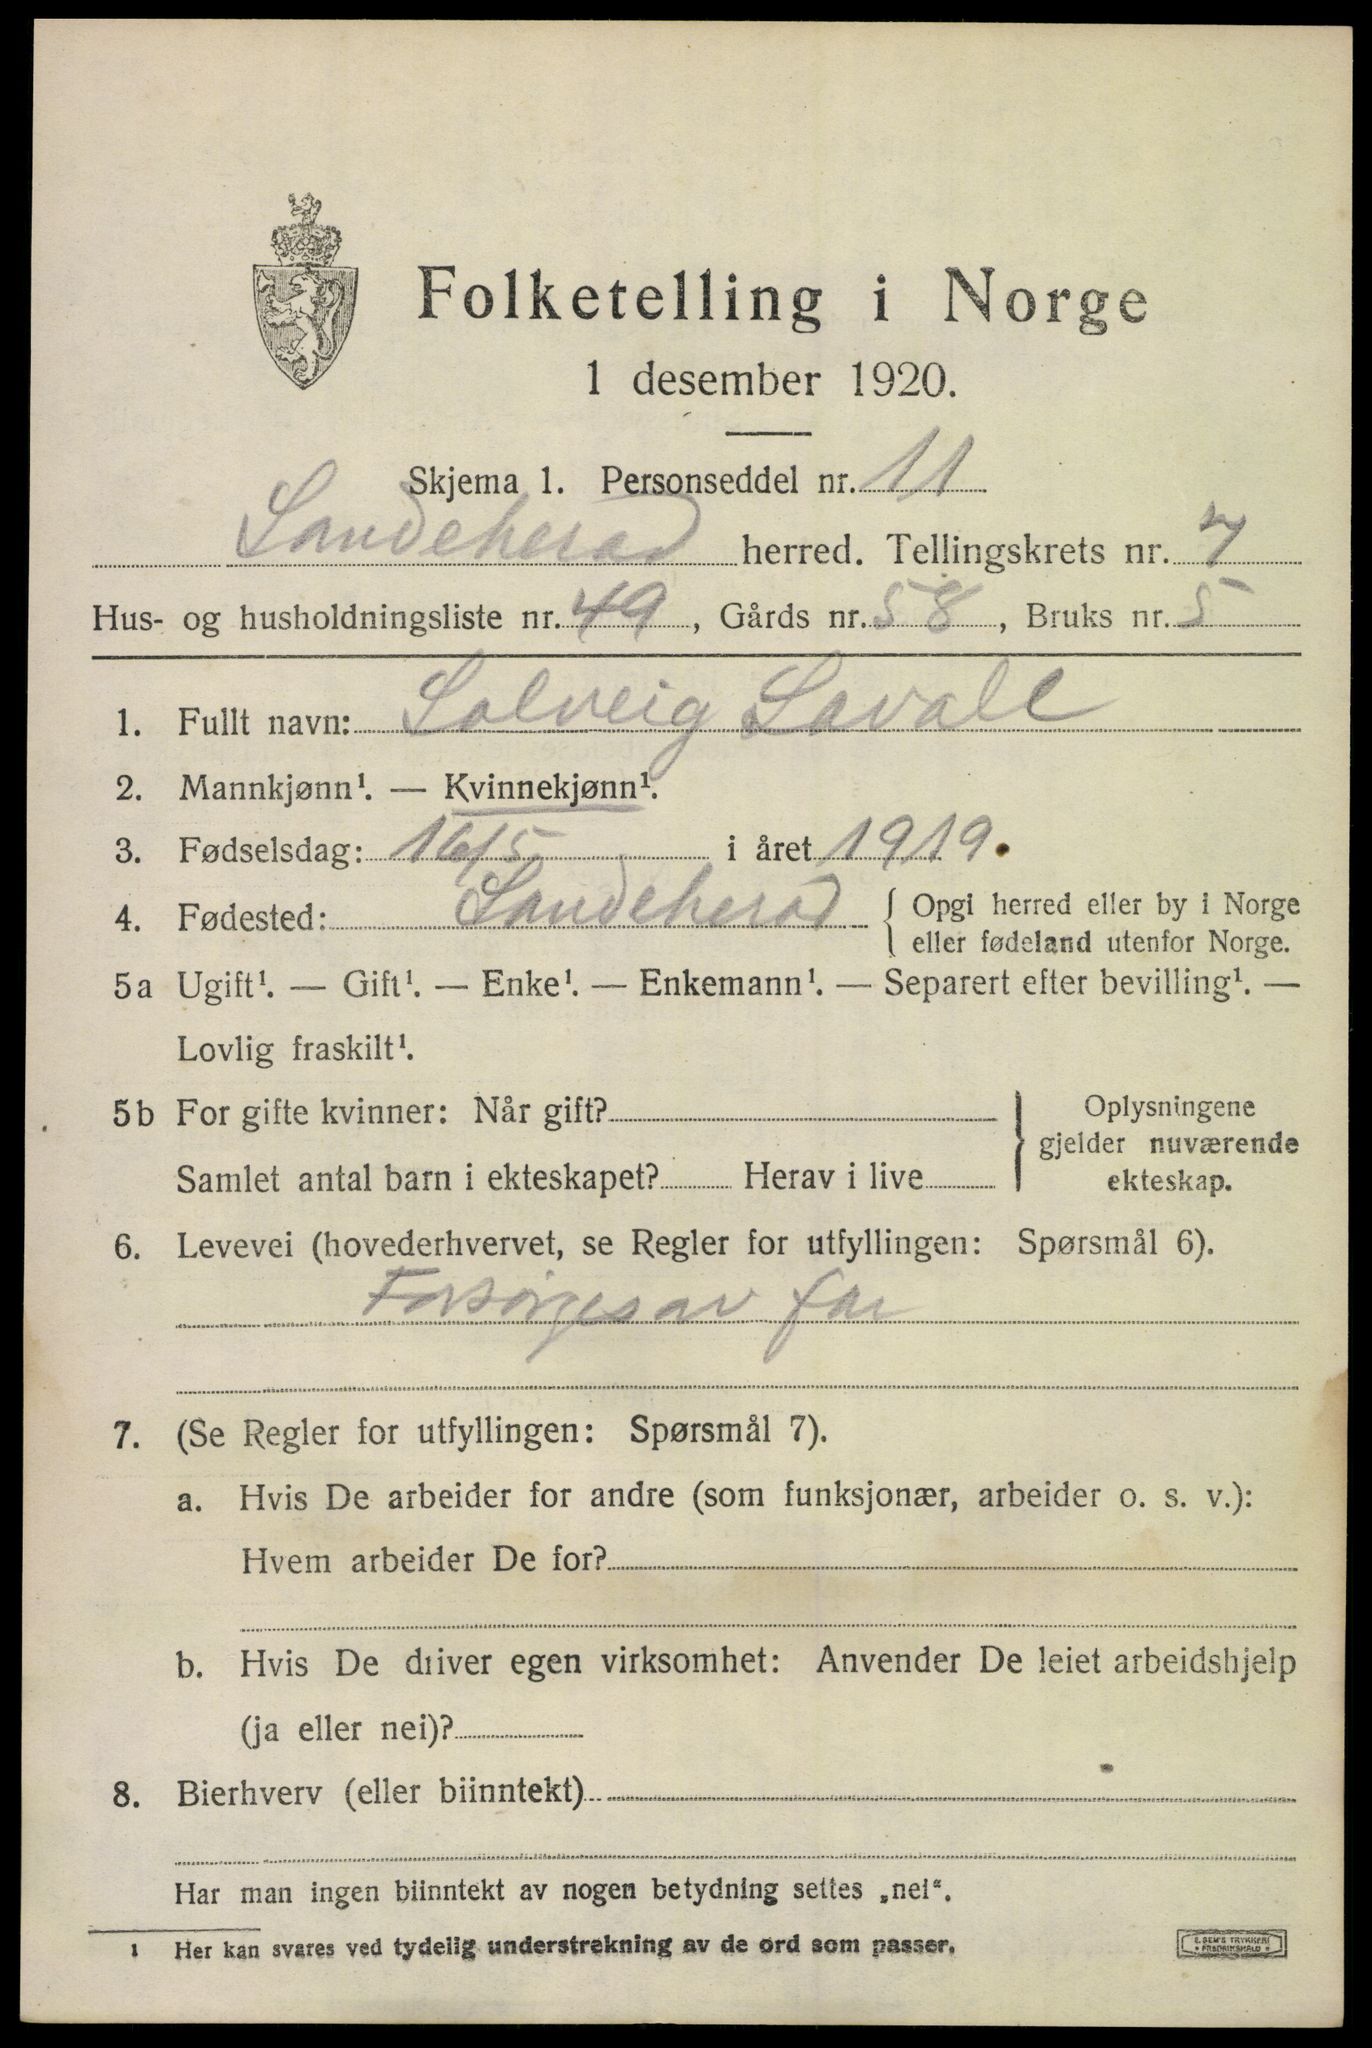 Folketelling i Norge
1 desember 1920.
Skjema 1. Personseddel nr. 11
Sandeherad herred. Tellingskrets nr. 7
Hus- og husholdningsliste nr. 49, Gårds nr. 58, Bruks nr. 5
1. Fullt navn: Solveig Savall
2. Mannkjønn¹. — Kvinnekjønn¹.
3. Fødselsdag: 16/5 i året 1919.
4. Fødested: Sandeherad { Opgi herred eller by i Norge
eller fødeland utenfor Norge.
5a Ugift¹. — Gift¹. — Enke¹. — Enkemann¹. — Separert efter bevilling¹. —
Lovlig fraskilt¹.
5b For gifte kvinner: Når gift? } Oplysningene
gjelder nuværende
Samlet antal barn i ekteskapet? Herav i live ekteskap.
6. Levevei (hovederhvervet, se Regler for utfyllingen: Spørsmål 6).
Forsørges av far
7. (Se Regler for utfyllingen: Spørsmål 7).
a. Hvis De arbeider for andre (som funksjonær, arbeider o. s. v.):
Hvem arbeider De for?
b. Hvis De driver egen virksomhet: Anvender De leiet arbeidshjelp
(ja eller nei)?
8. Bierhverv (eller biinntekt)
Har man ingen biinntekt av nogen betydning settes „nei“.
1 Her kan svares ved tydelig understrekning av de ord som passer.
E. SEM'S TRYKKERI
FREDRIKSHALD